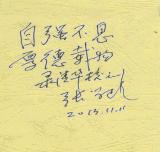 自强不息
厚德载物
录清华校训
2015.11.11